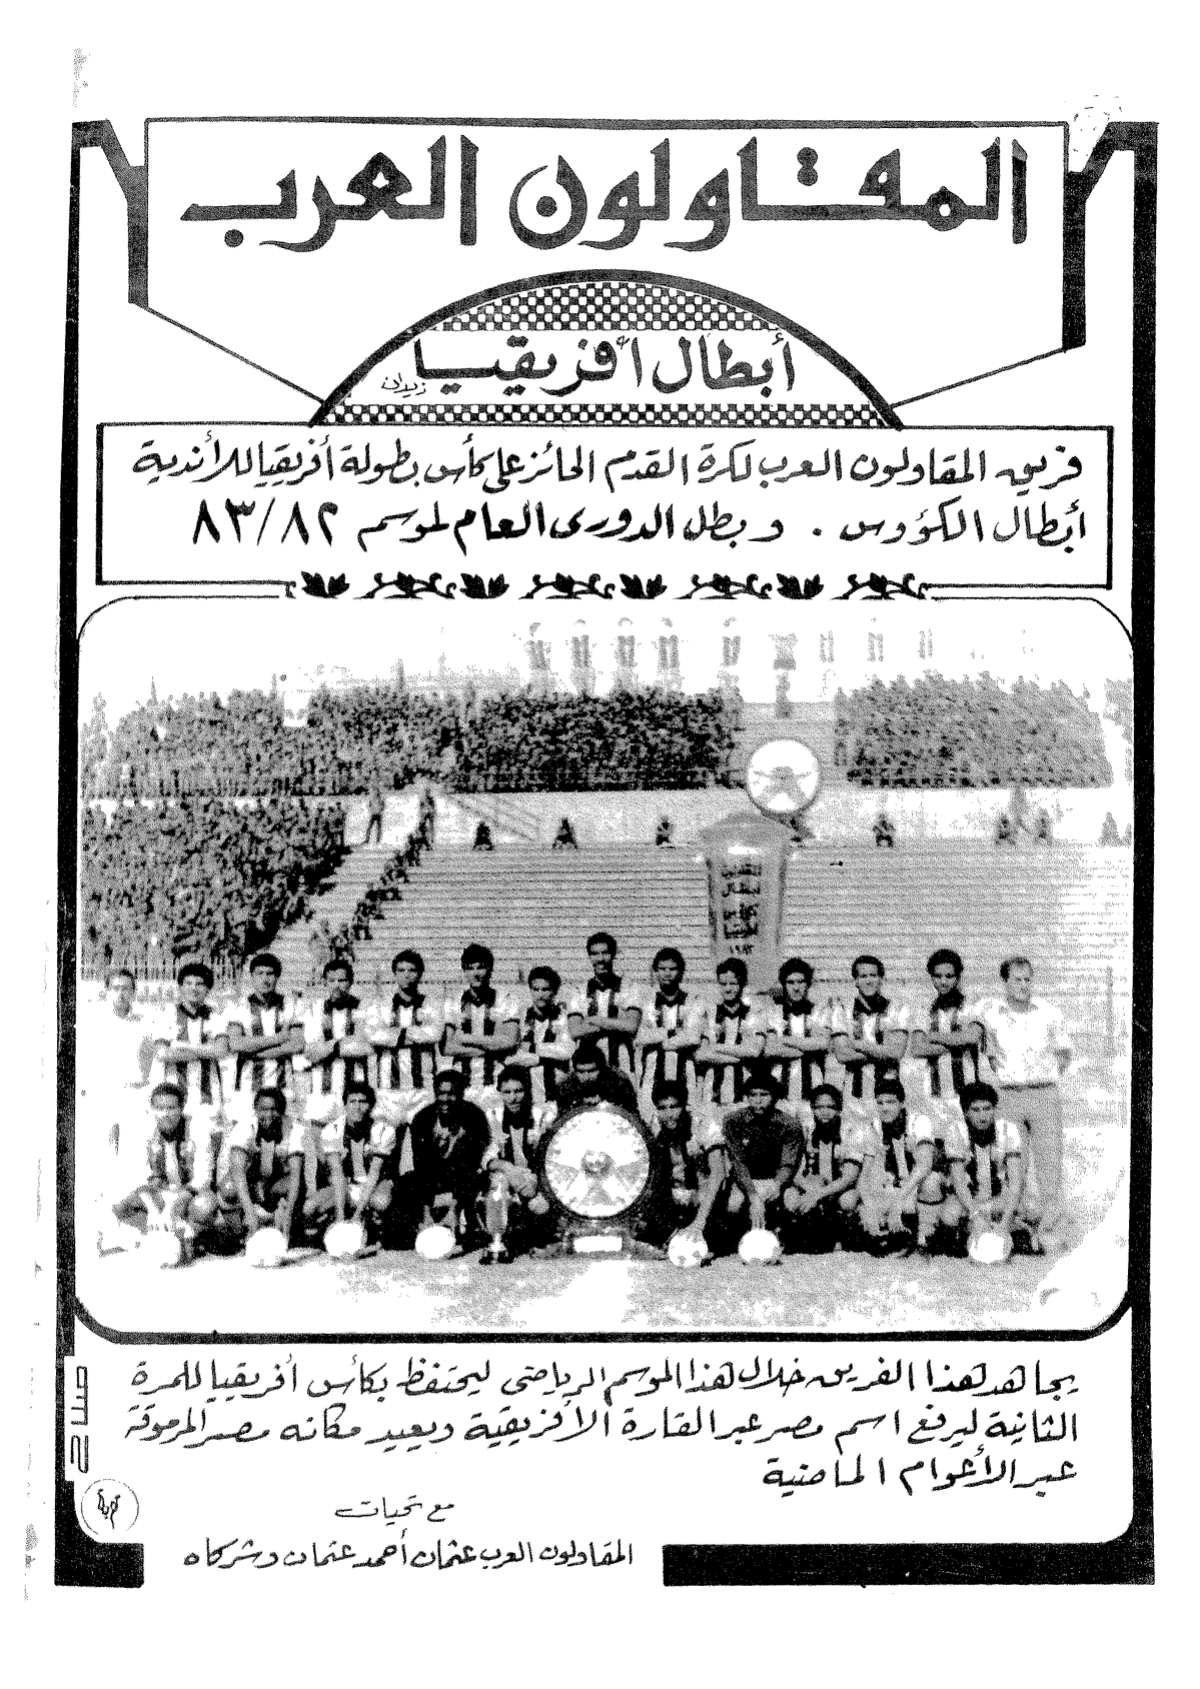 المقاولون العرب
أبطال أفريقيا
زيدان
فريق المقاولون العرب لكرة القدم الحائز على كأس بطولة أفريقيا للأندية
أبطال الكؤوس . وبطل الدورى العام لموسم ٨٣/٨٢
١٩٨٣
يجاهد هذا الفريق خلال هذا الموسم الرياضى ليحتفظ بكأس أفريقيا للمرة
الثانية ليرفع اسم مصر عبر القارة الأفريقية ويعيد مكانه مصر المرموقة
عبر الأعوام الماضية
مع تحيات
المقاولون العرب عثمان أحمد عثمان وشركاه